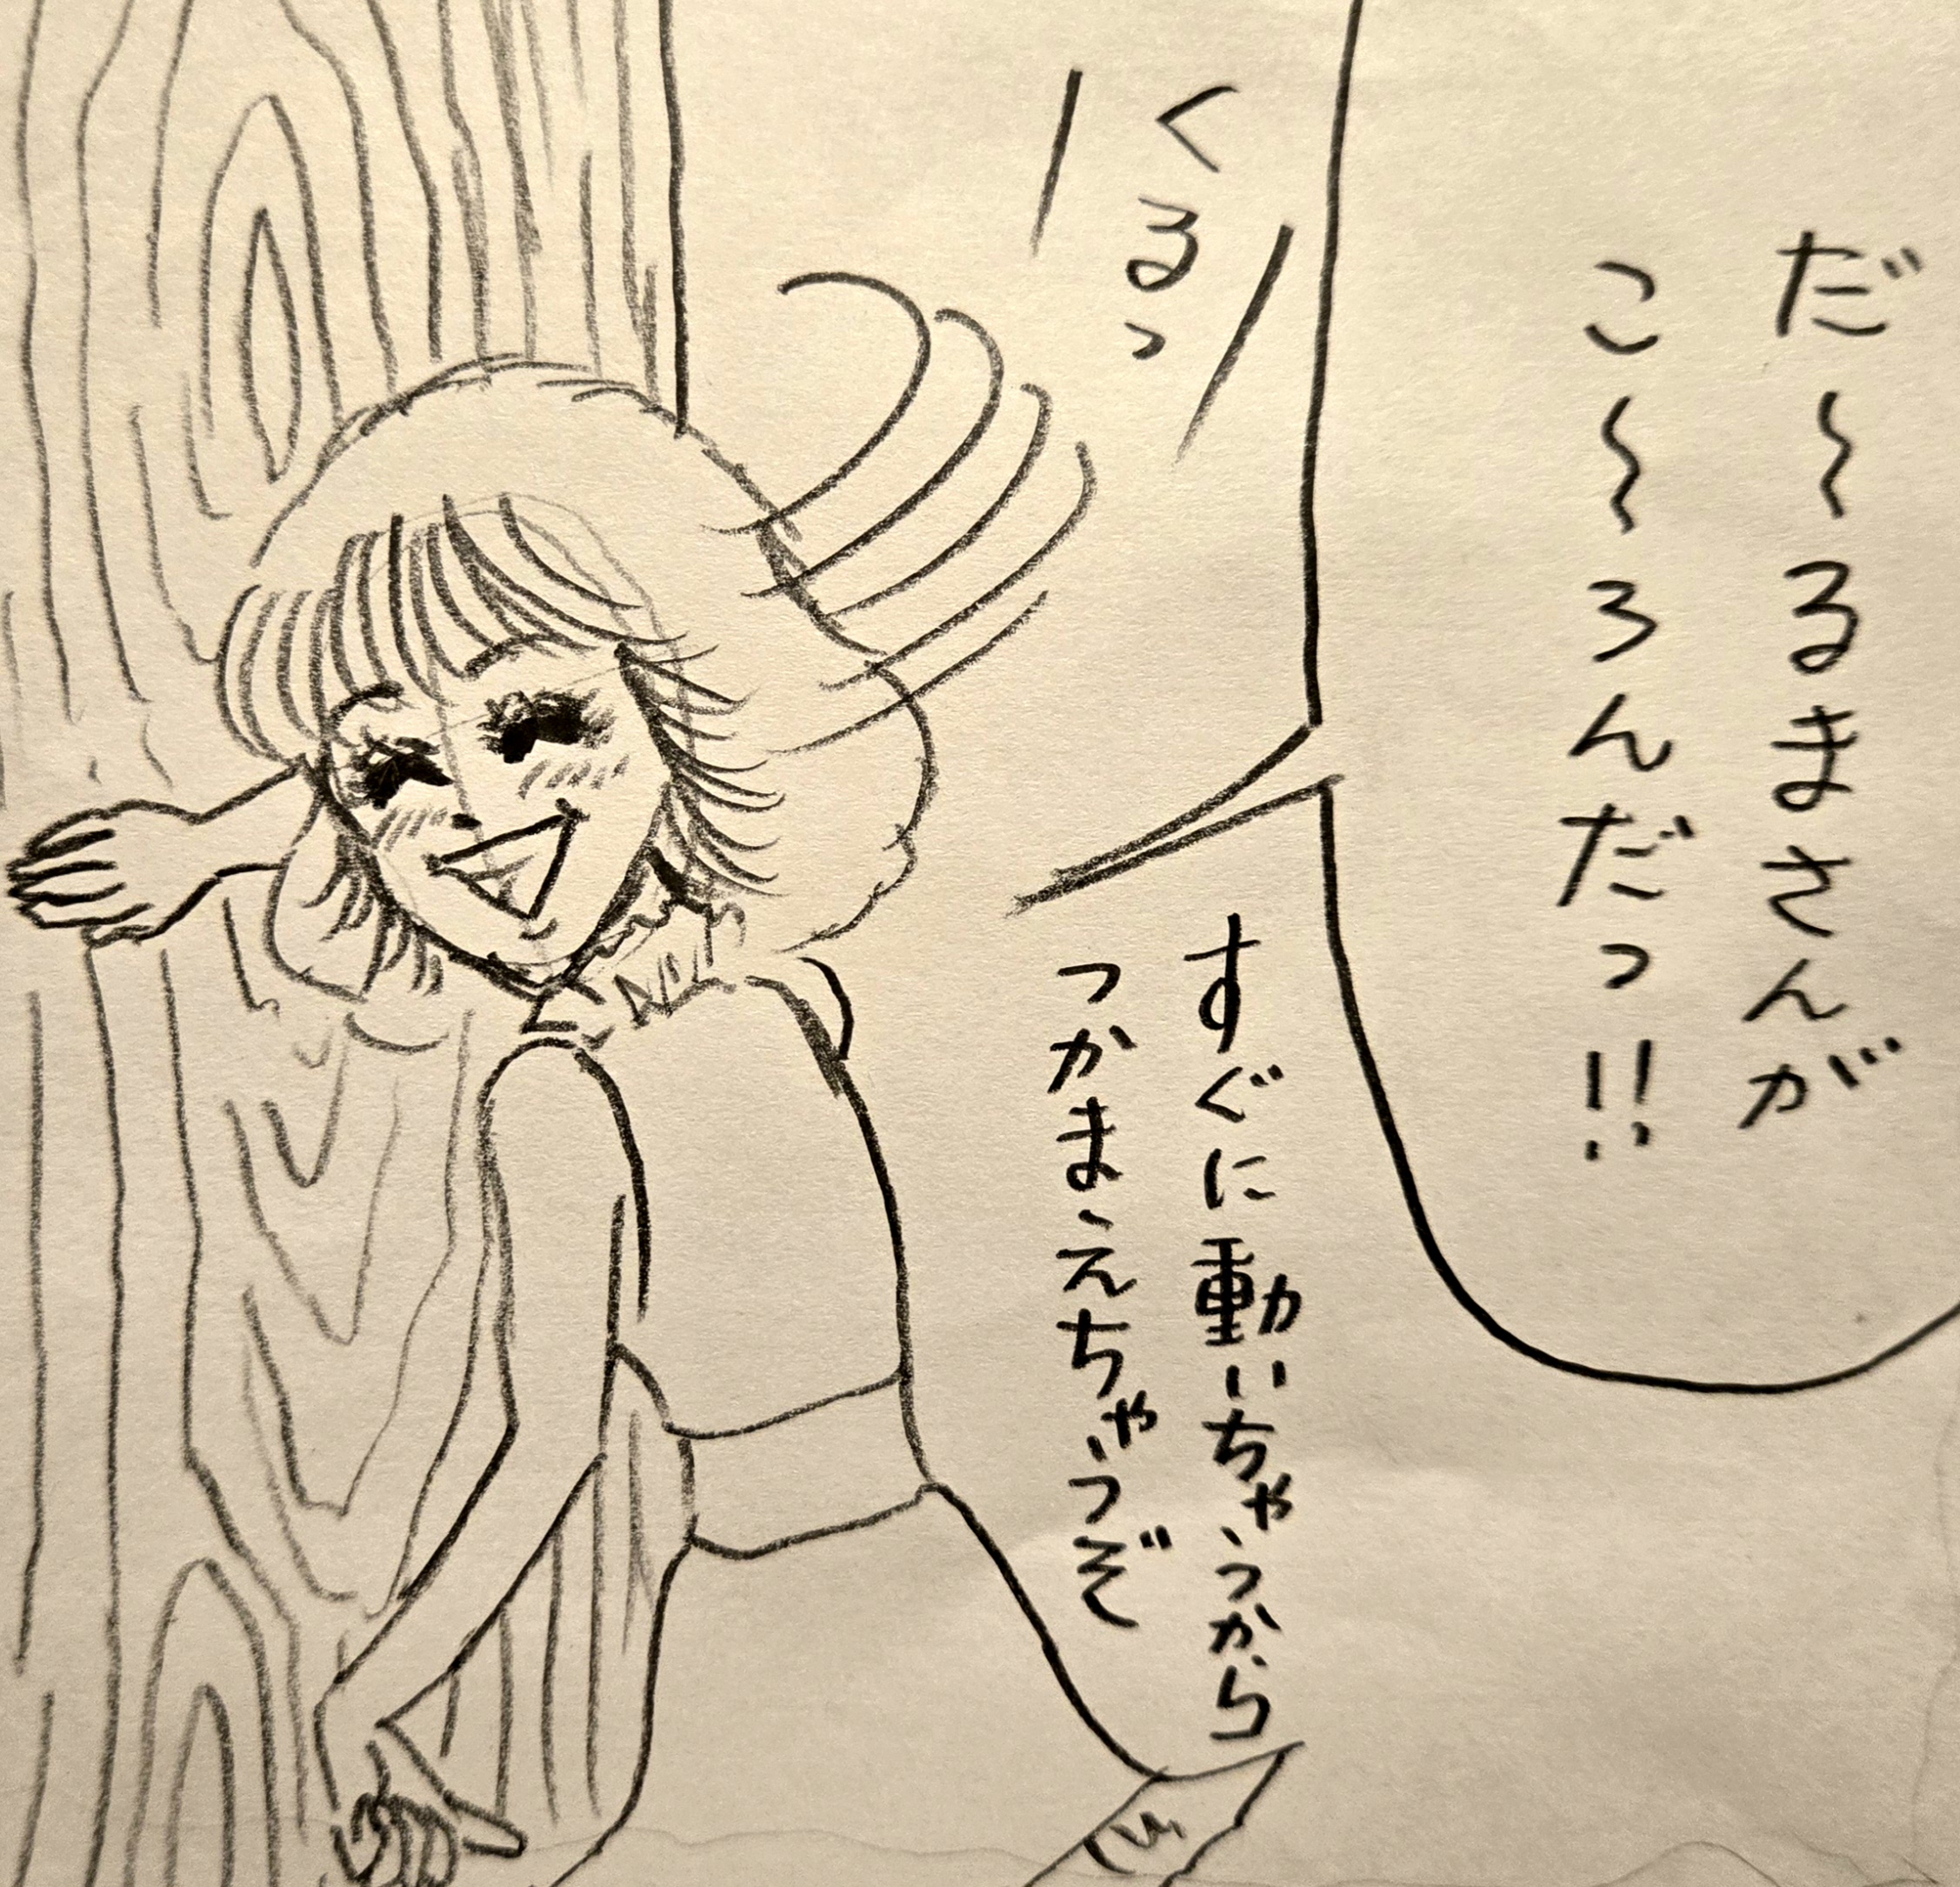 だ〜るまさんが
こ〜ろんだっ!!
くるっ
すぐに動いちゃうから
つかまえちゃうぞ